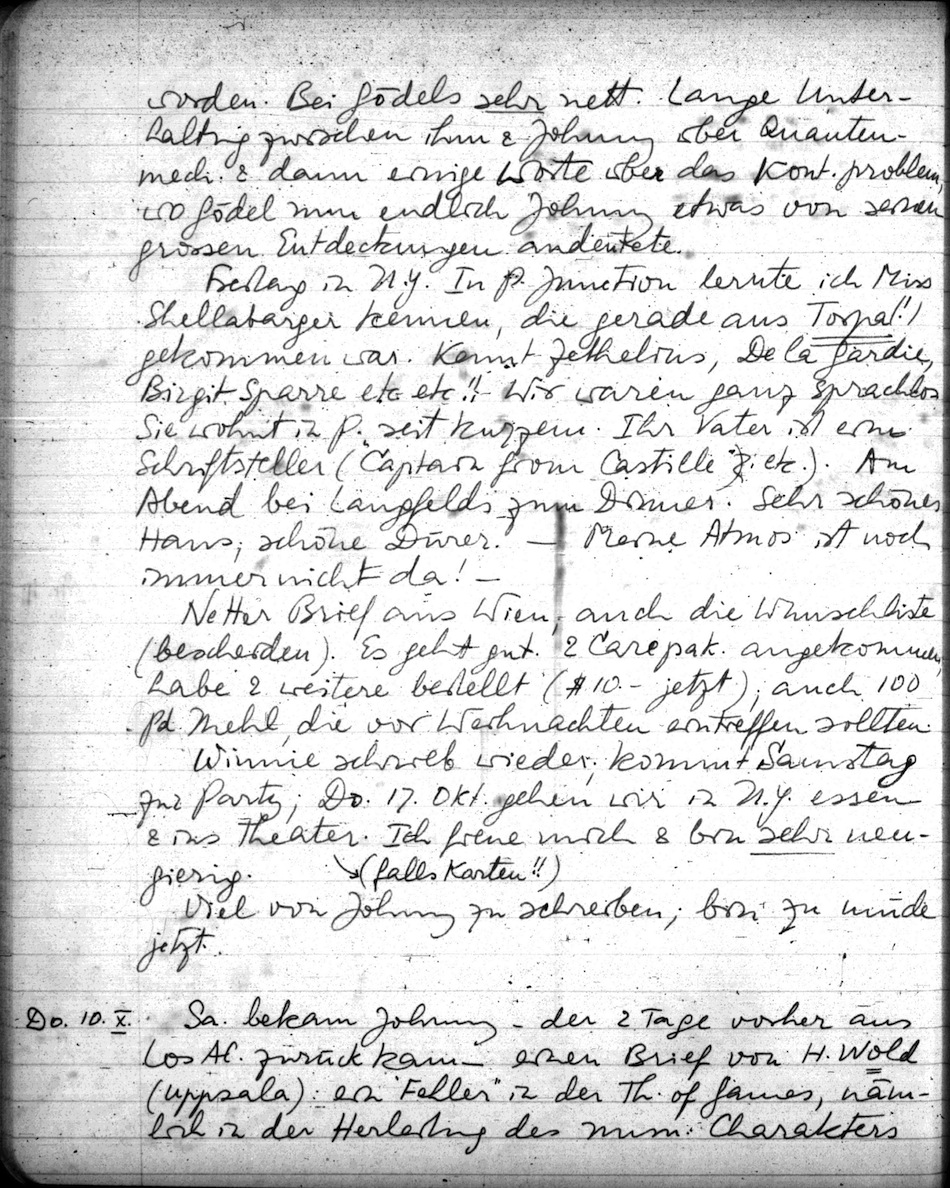 worden. Bei Gödels sehr nett. Lange Unter-
haltung zwischen ihm & Johnny über Quanten-
mech. & dann einige Worte über das Kont. problem,
wo Gödel nun endlich Johnny etwas von seinen
grossen Entdeckungen andeutete.
Freitag in N.Y. In P. Junction lernte ich Miss
Shellabarger kennen, die gerade aus Torpa(!!)
gekommen war. Kennt Zethelius, De la Gardie,
Birgit Sparre etc etc!! Wir waren ganz sprachlos
Sie wohnt in P. seit kurzem. Ihr Vater ist ein
Schriftsteller (Captain from Castille etc.). Am
Abend bei Langfelds zum Dinner. Sehr schönes
Haus, schöne Dürer. — Meine Atmos ist noch
immer nicht da! —
Netter Brief aus Wien, auch die Wunschliste
(bescheiden). Es geht gut. 2 Carepak. angekommen,
habe 2 weitere bestellt ($10.- jetzt), auch 100
Pd. Mehl, die vor Weihnachten eintreffen sollten.
Winnie schrieb wieder; kommt Samstag
zur Party; Do. 17. Okt. gehen wir in N.Y. essen
& ins Theater. Ich freue mich & bin sehr neu-
gierig. (falls Karten!!)
Viel von Johnny zu schreiben; bin zu müde
jetzt.
Do. 10. X. Sa. bekam Johnny - der 2 Tage vorher aus
Los Al. zurückkam - einen Brief von H. Wold
(Uppsala): ein "Fehler" in der Th. of Games, näm-
lich in der Herleitung des num. Charakters